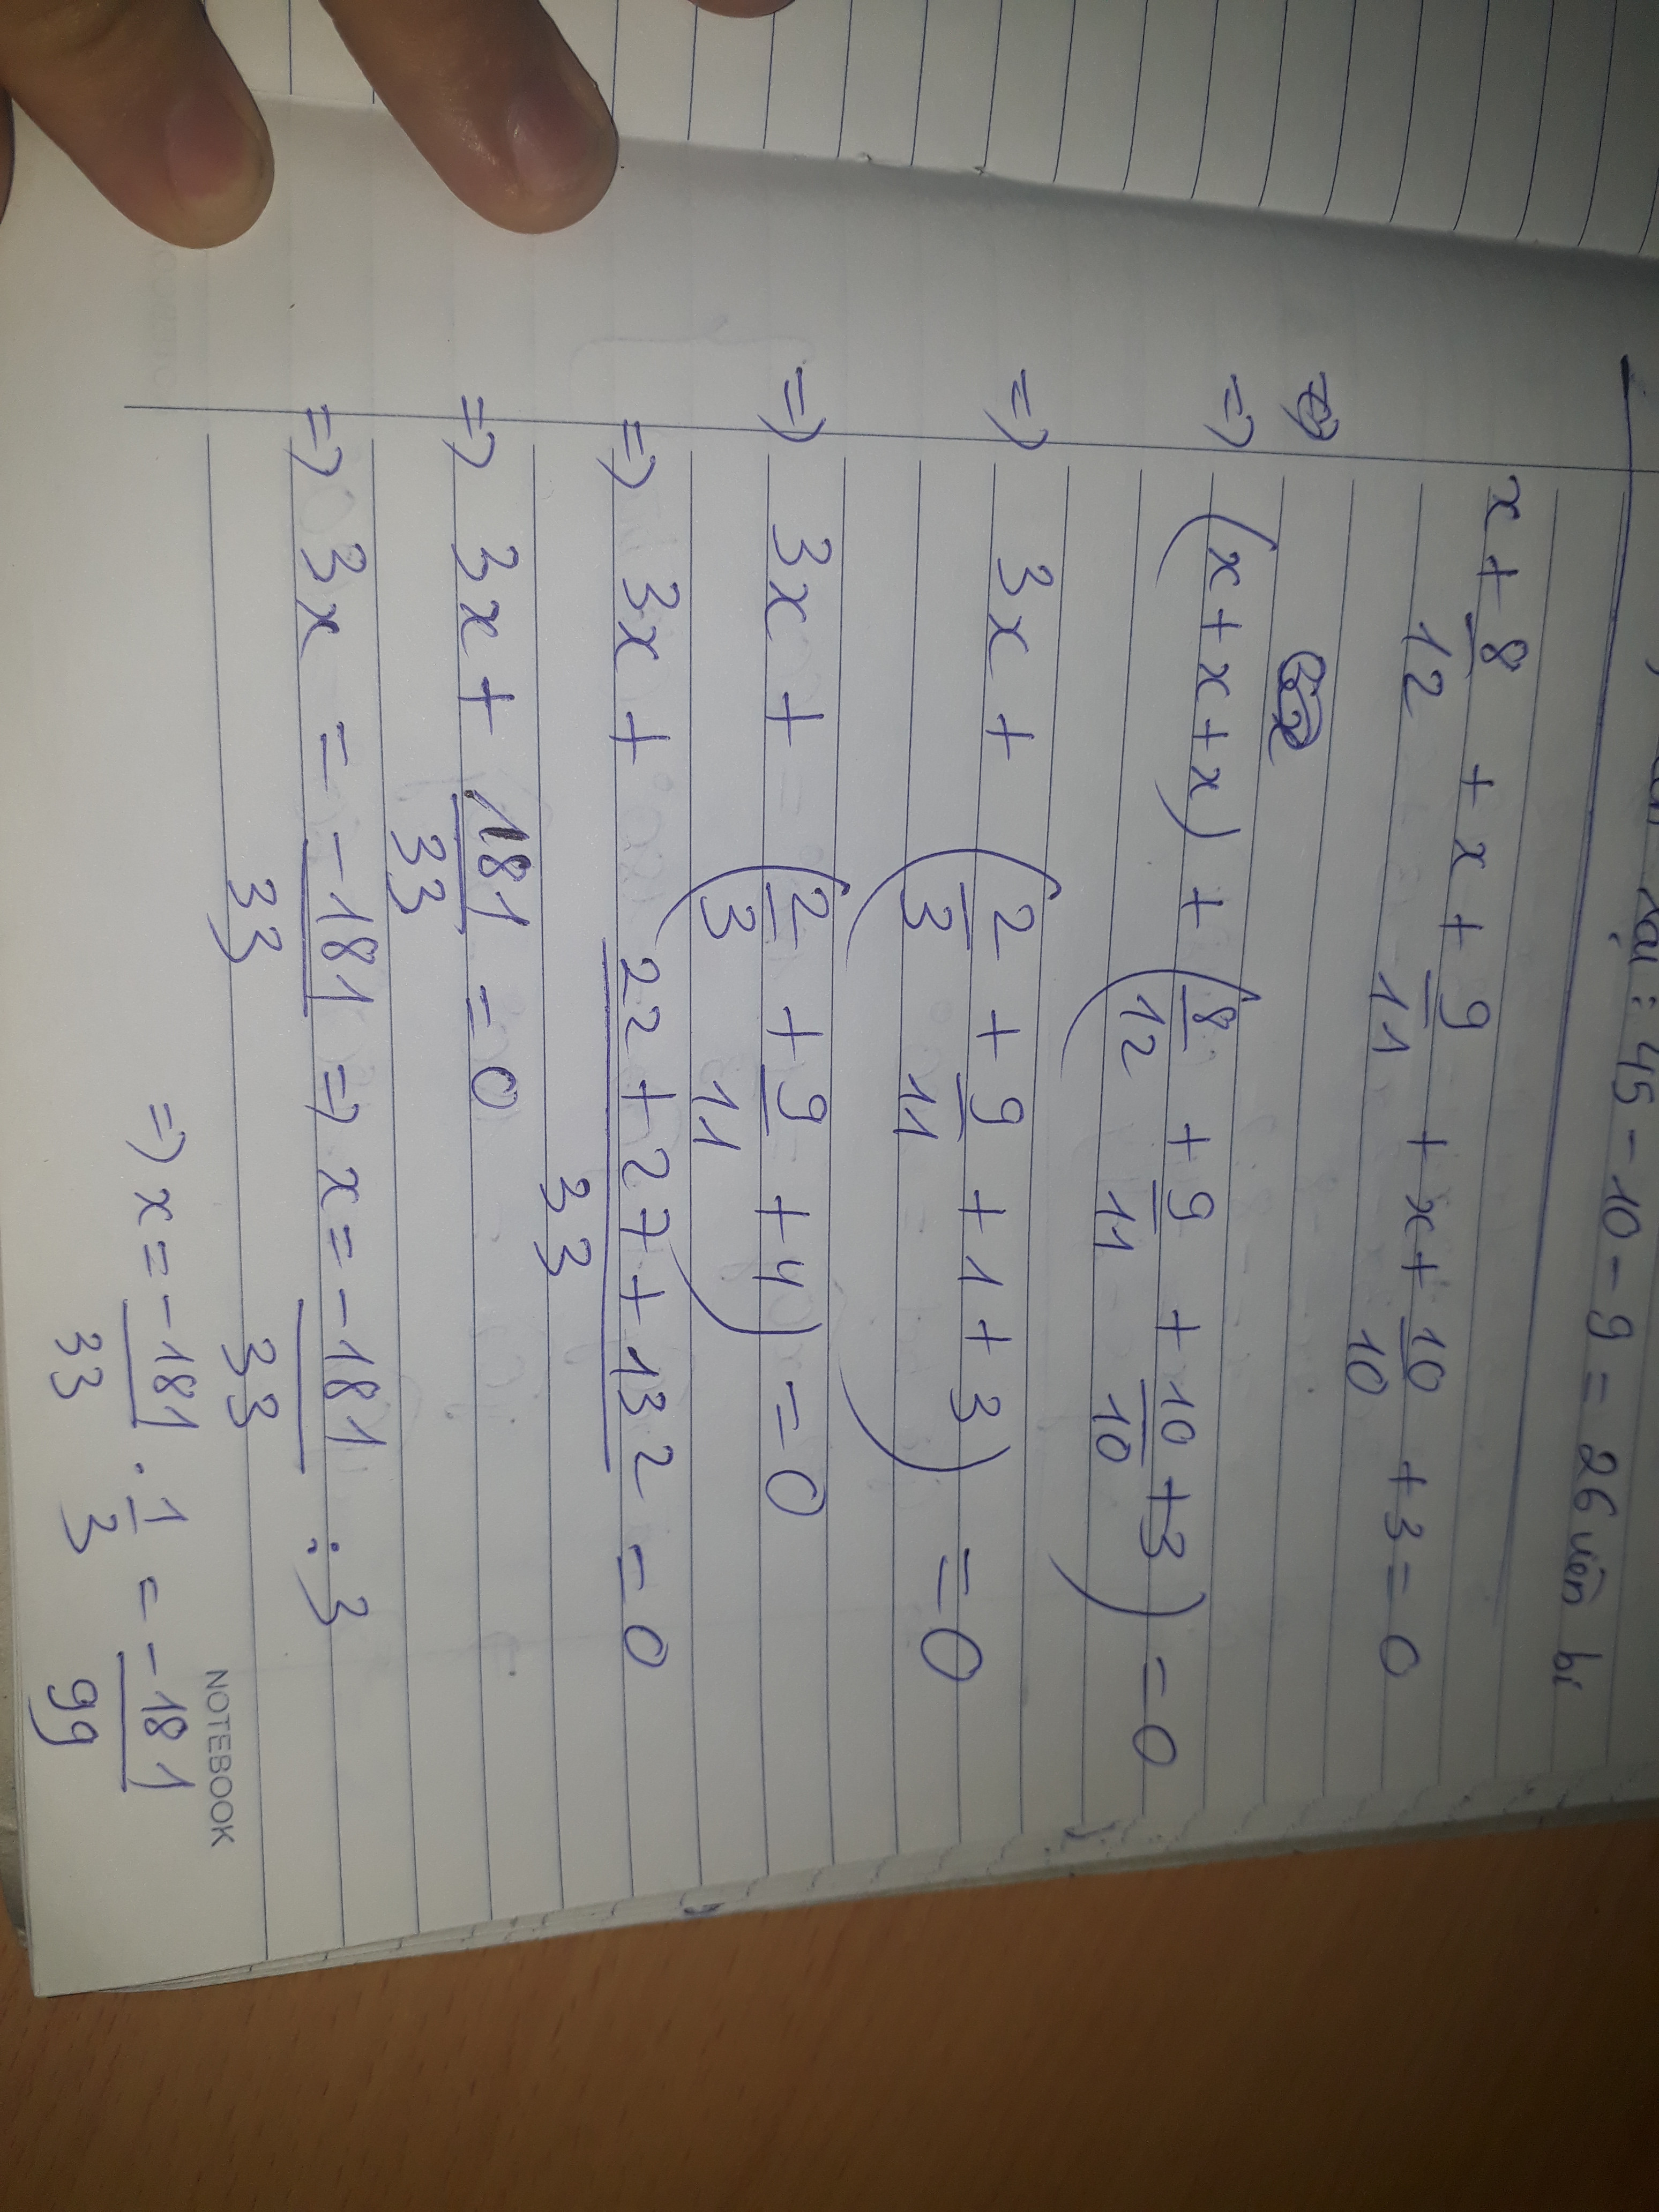 lại : 45 - 10 - 9 = 26 viên bi
x + 8/12 + x + 9/11 + x + 10/10 + 3 = 0
=> (x + x + x) + (8/12 + 9/11 + 10/10 + 3) = 0
=> 3x + (2/3 + 9/11 + 1 + 3) = 0
=> 3x + (2/3 + 9/11 + 4) = 0
=> 3x + (22 + 27 + 132)/33 = 0
=> 3x + 181/33 = 0
=> 3x = -181/33 => x = -181/33 : 3
=> x = -181/33 . 1/3 = -181/99
NOTEBOOK